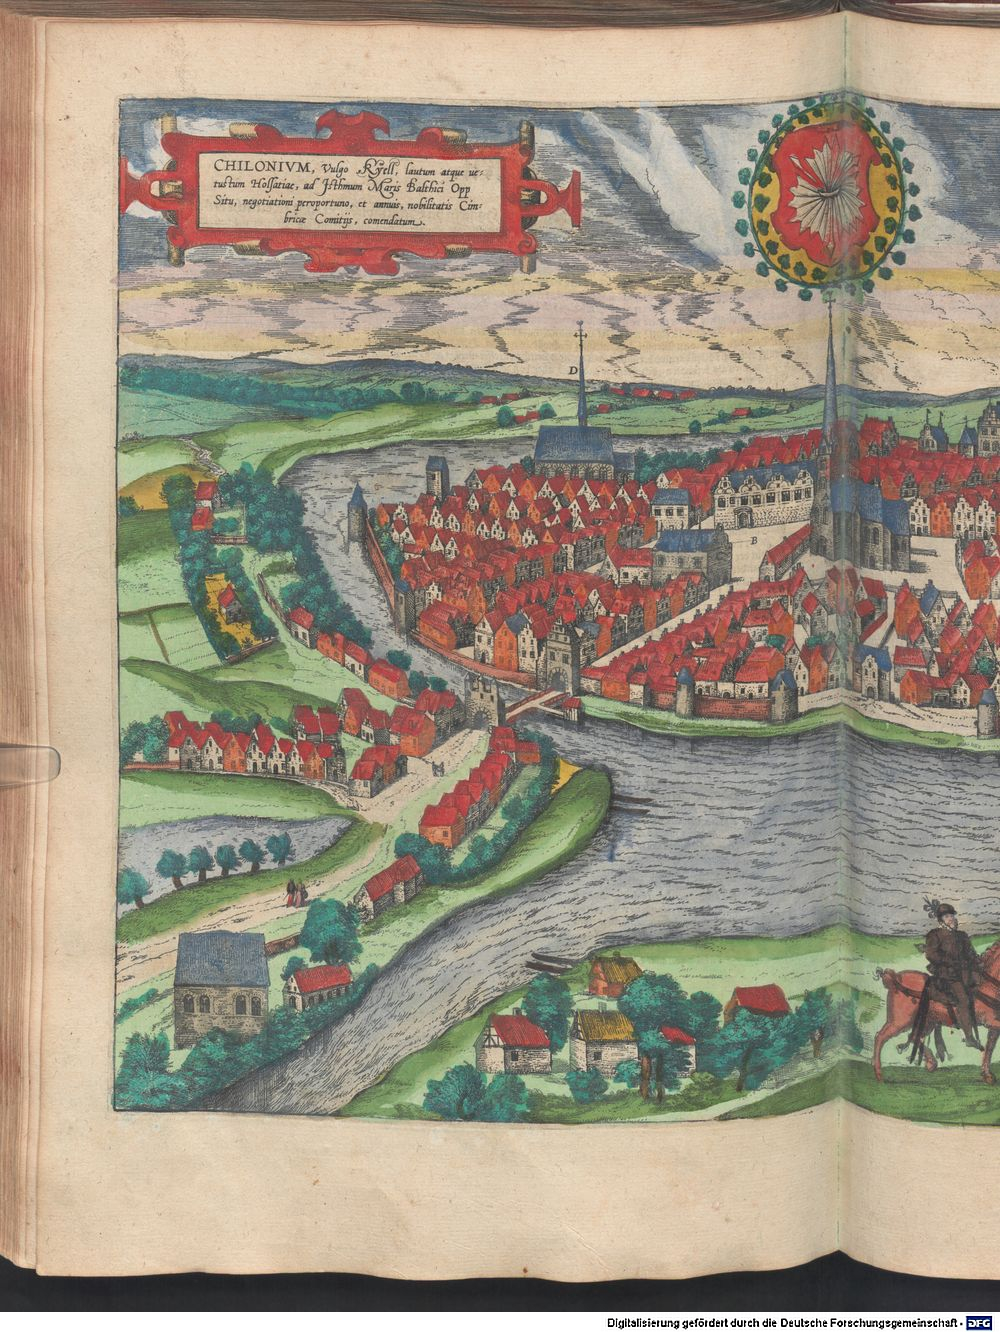 CHILONIVM, Vulgo Kyell, lautum atque ue-
tustum Holsatiae, ad Isthmum Maris Balthici Opp
Situ, negotiationi peroportuno, et annuis, nobilitatis Cim-
bricae Comitijs, comendatum.
D
B
Digitalisierung gefördert durch die Deutsche Forschungsgemeinschaft - DFG